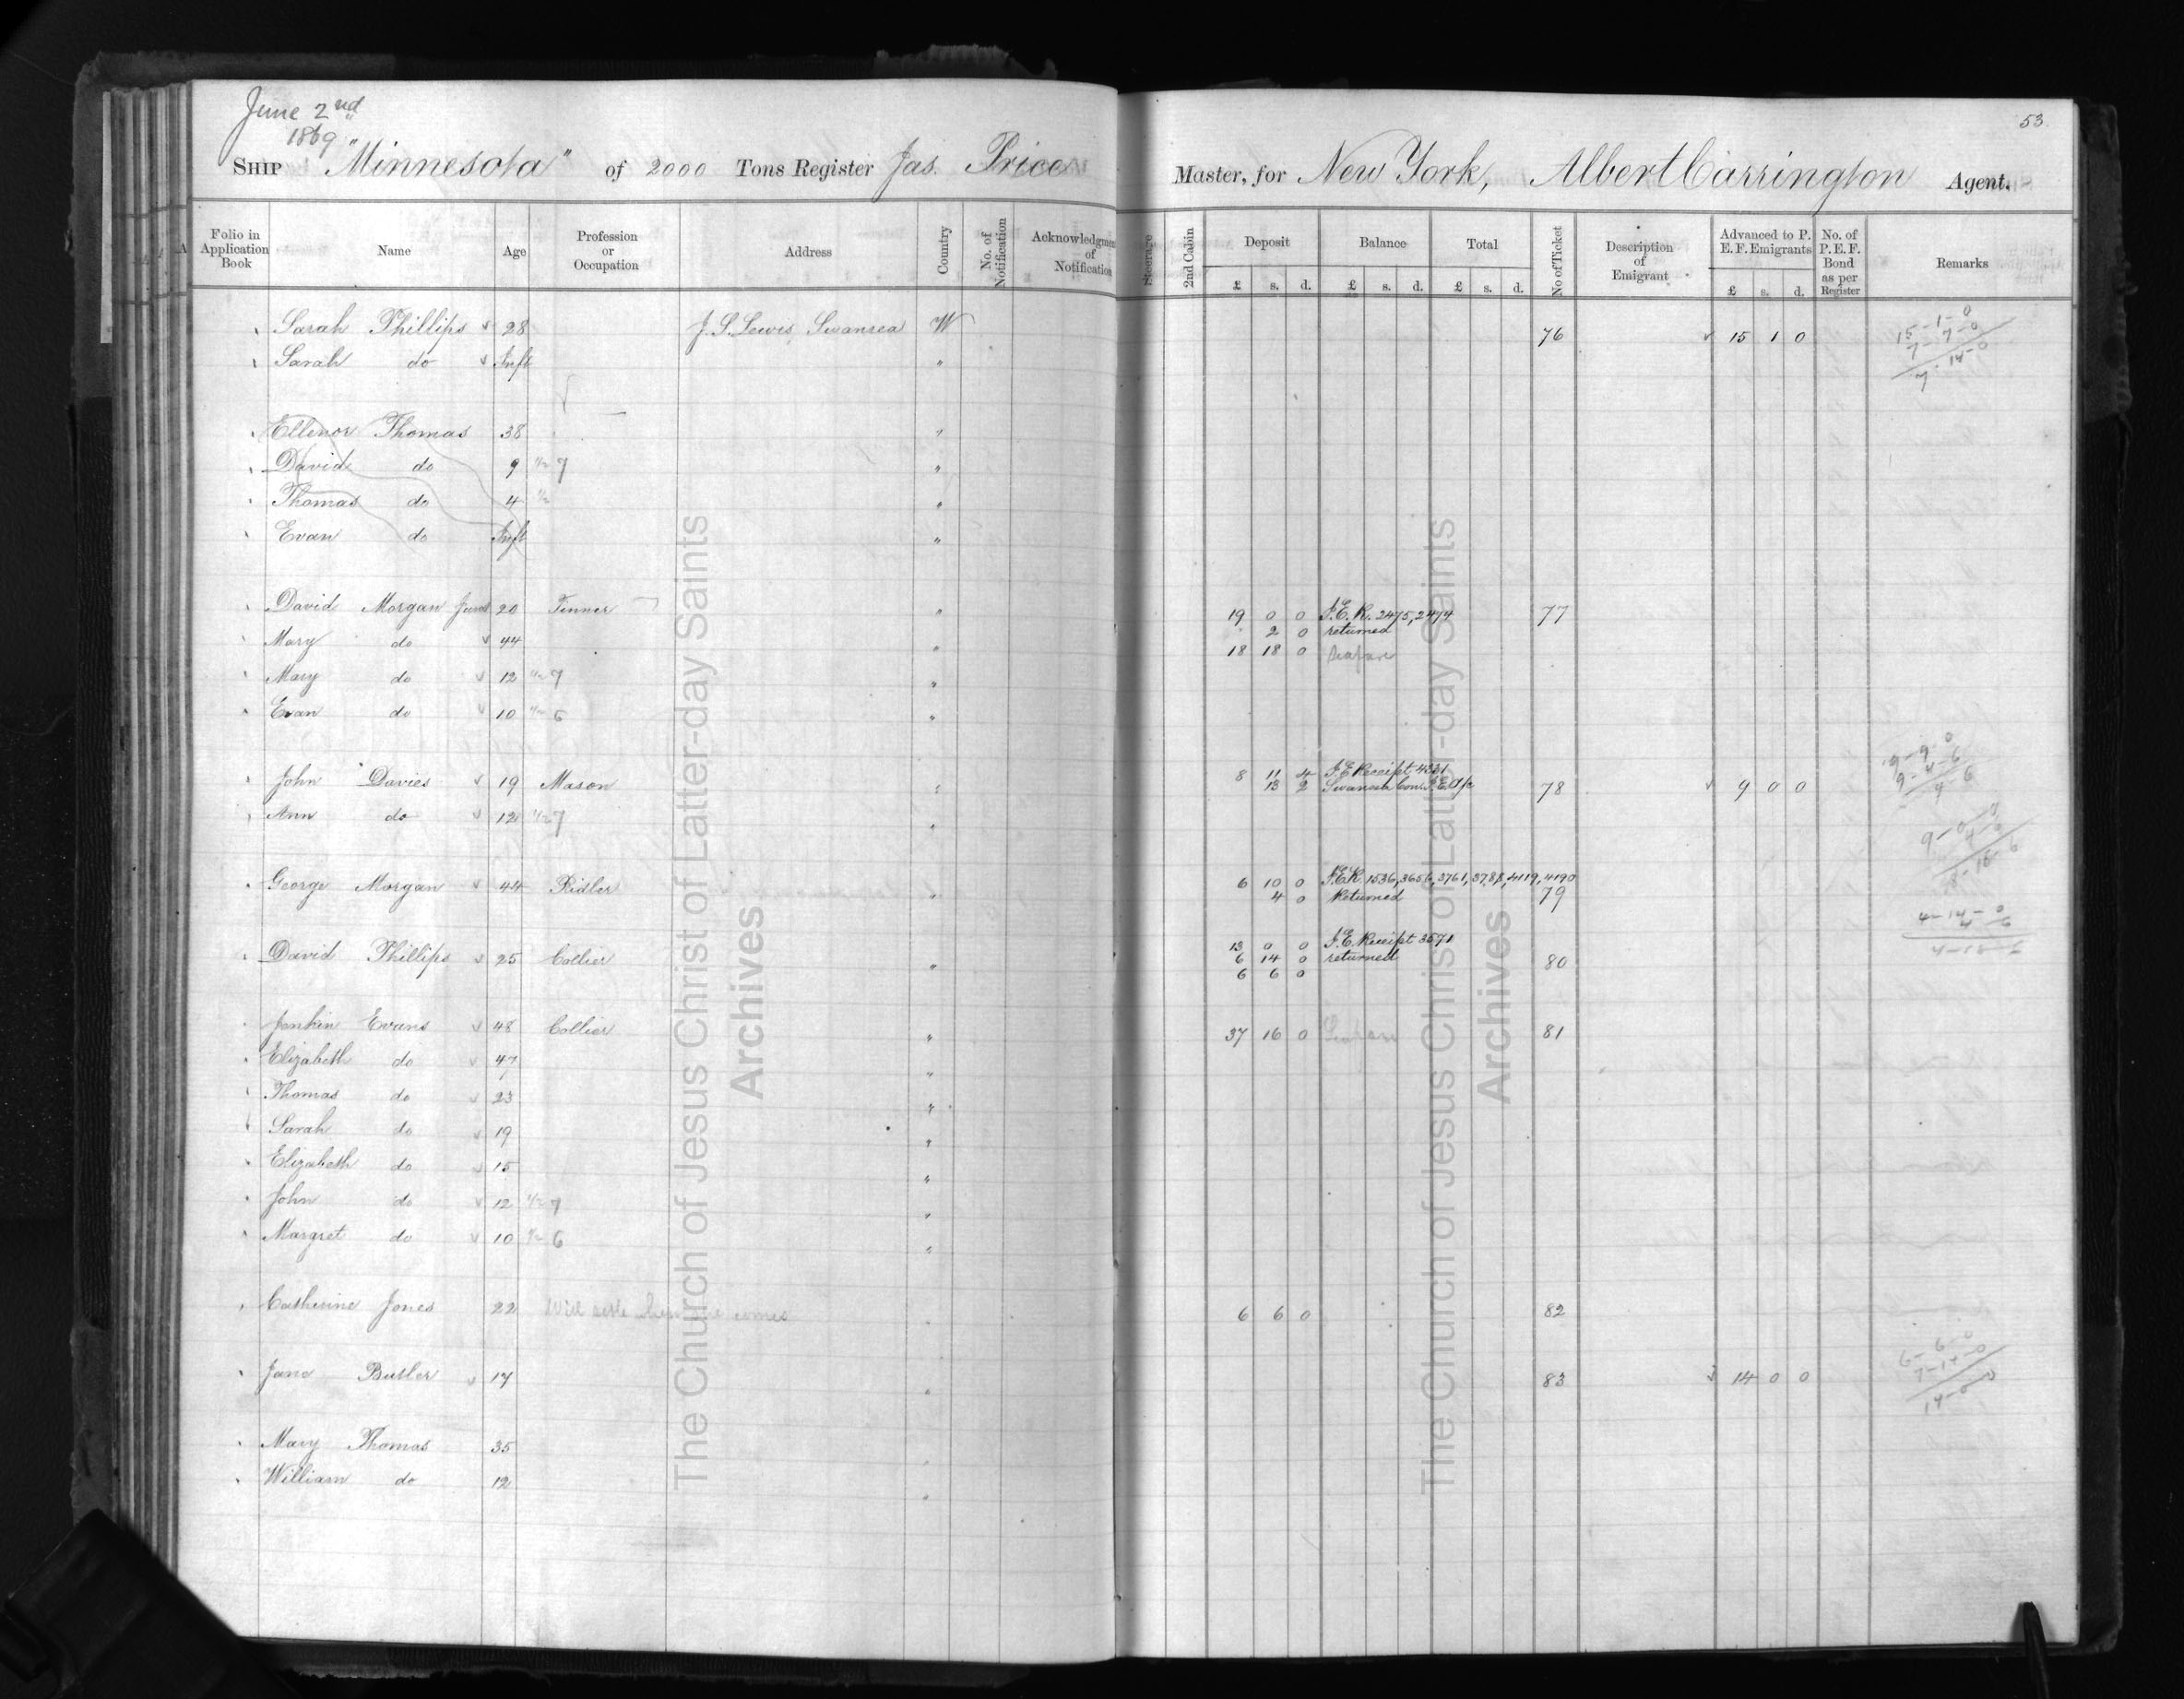 June 2nd
1869
53
SHIP "Minnesota" of 2000 Tons Register Jas. Price Master, for New York, Albert Carrington Agent.
Folio in Application Book Name Age Profession or Occupation Address Country No. of Notification Acknowledgment of Notification Steerage 2nd Cabin Deposit £ s. d. Balance £ s. d. Total £ s. d. No of Ticket Description of Emigrant Advanced to P. E. F. Emigrants £ s. d. No. of P. E. F. Bond as per Register Remarks
Sarah Phillips 28 J. S. Lewis, Swansea W 76 15 1 0 15-1-0
7-7-0
Sarah do Inft " 7-14-0
Ellenor Thomas 38 "
David do 9 1/2 7 "
Thomas do 4 1/2 "
Evan do Inft "
David Morgan Junr 20 Tinner " 19 0 0 I.E.R. 2475, 2474 77
Mary do 44 " 2 0 returned
18 18 0
Mary do 12 1/2 7 "
Evan do 10 1/2 6 "
John Davies 19 Mason " 8 11 4 I.E. Receipt 4221 78 9 0 0
13 2 Swansea Con. I.E. a/c
Ann do 12 1/2 7 "
George Morgan 44 Ridler " 6 10 0 I.E.R. 1536, 3656, 3761, 3788, 4119, 4190
4 0 Returned 79
4-14-0
David Phillips 25 Collier " 13 0 0 I.E. Receipt 3571
6 14 0 returned 80
6 6 0
Jenkin Evans 48 Collier " 37 16 0 81
Elizabeth do 47 "
Thomas do 23 "
Sarah do 19 "
Elizabeth do 15 "
John do 12 1/2 7 "
Margret do 10 1/2 6 "
Catherine Jones 22 Will settle when she comes " 6 6 0 82
Jane Butler 17 " 83 14 0 0 6-6-0
7-14-0
14-0-0
Mary Thomas 35 "
William do 12 "
The Church of Jesus Christ of Latter-day Saints
Archives
The Church of Jesus Christ of Latter-day Saints
Archives